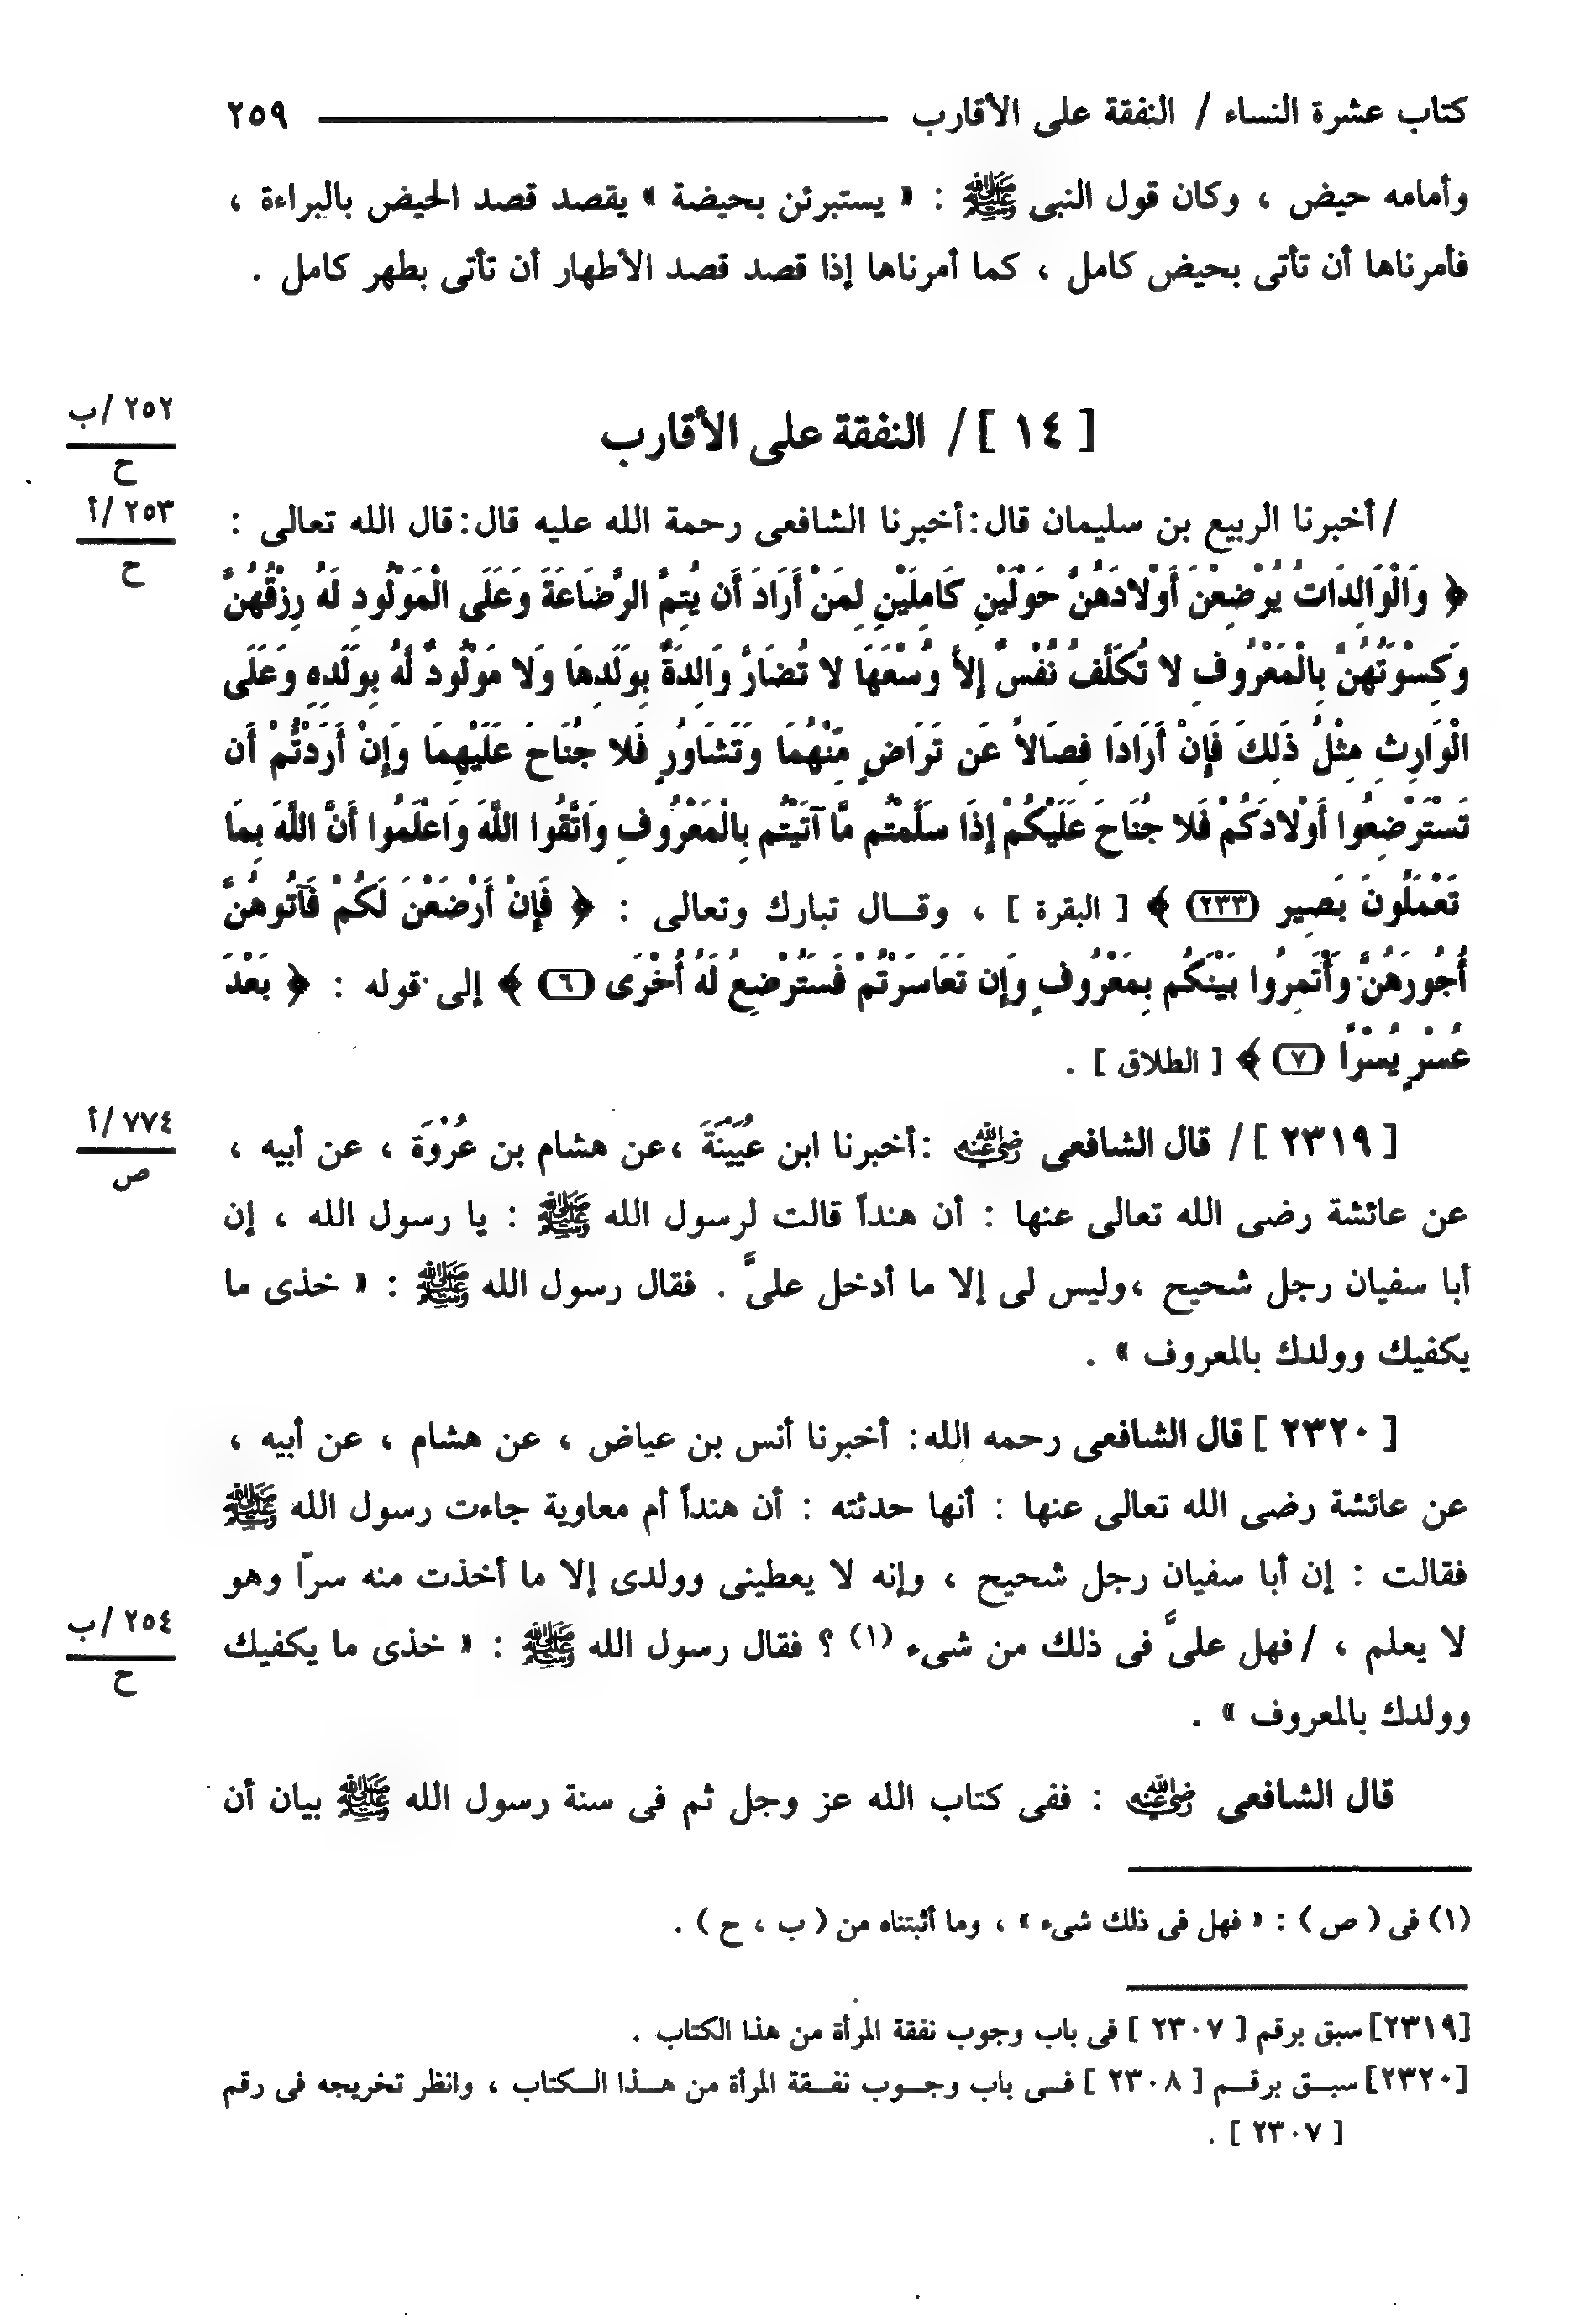 كتاب عشرة النساء / النفقة على الأقارب ٢٥٩
وأمامه حيض ، وكان قول النبى ﷺ : « يستبرئن بحيضة » يقصد قصد الحيض بالبراءة ،
فأمرناها أن تأتى بحيض كامل ، كما أمرناها إذا قصد قصد الأطهار أن تأتى بطهر كامل .
٢٥٢ /ب
ح
[ ١٤ ] / النفقة على الأقارب
٢٥٣ /أ
ح
/ أخبرنا الربيع بن سليمان قال : أخبرنا الشافعى رحمة الله عليه قال : قال الله تعالى :
﴿ وَالْوَالِدَاتُ يُرْضِعْنَ أَوْلادَهُنَّ حَوْلَيْنِ كَامِلَيْنِ لِمَنْ أَرَادَ أَن يُتِمَّ الرَّضَاعَةَ وَعَلَى الْمَوْلُودِ لَهُ رِزْقُهُنَّ
وَكِسْوَتُهُنَّ بِالْمَعْرُوفِ لا تُكَلَّفُ نَفْسٌ إِلاَّ وُسْعَهَا لا تُضَارَّ وَالِدَةٌ بِوَلَدِهَا وَلا مَوْلُودٌ لَّهُ بِوَلَدِهِ وَعَلَى
الْوَارِثِ مِثْلُ ذَلِكَ فَإِنْ أَرَادَا فِصَالاً عَن تَرَاضٍ مِّنْهُمَا وَتَشَاوُرٍ فَلا جُنَاحَ عَلَيْهِمَا وَإِنْ أَرَدْتُّمْ أَن
تَسْتَرْضِعُوا أَوْلادَكُمْ فَلا جُنَاحَ عَلَيْكُمْ إِذَا سَلَّمْتُم مَّا آتَيْتُم بِالْمَعْرُوفِ وَاتَّقُوا اللَّهَ وَاعْلَمُوا أَنَّ اللَّهَ بِمَا
تَعْمَلُونَ بَصِير (٢٣٣) ﴾ [ البقرة ] ، وقال تبارك وتعالى : ﴿ فَإِنْ أَرْضَعْنَ لَكُمْ فَآتُوهُنَّ
أُجُورَهُنَّ وَأْتَمِرُوا بَيْنَكُم بِمَعْرُوفٍ وَإِن تَعَاسَرْتُمْ فَسَتُرْضِعُ لَهُ أُخْرَى (٦) ﴾ إلى قوله : ﴿ بَعْدَ
عُسْرٍ يُسْرًا (٧) ﴾ [ الطلاق ] .
٧٧٤ /أ
ص
[ ٢٣١٩ ] / قال الشافعى رضي الله عنه : أخبرنا ابن عُيَيْنَةَ ، عن هشام بن عُرْوَة ، عن أبيه ،
عن عائشة رضى الله تعالى عنها : أن هنداً قالت لرسول الله ﷺ : يا رسول الله ، إن
أبا سفيان رجل شحيح ، وليس لى إلا ما أدخل علىَّ . فقال رسول الله ﷺ : « خذى ما
يكفيك وولدك بالمعروف » .
[ ٢٣٢٠ ] قال الشافعى رحمه الله : أخبرنا أنس بن عياض ، عن هشام ، عن أبيه ،
عن عائشة رضى الله تعالى عنها : أنها حدثته : أن هنداً أم معاوية جاءت رسول الله ﷺ
فقالت : إن أبا سفيان رجل شحيح ، وإنه لا يعطينى وولدى إلا ما أخذت منه سرّا وهو
٢٥٤ /ب
ح
لا يعلم ، / فهل علىَّ فى ذلك من شىء (١) ؟ فقال رسول الله ﷺ : « خذى ما يكفيك
وولدك بالمعروف » .
قال الشافعى رضي الله عنه : ففى كتاب الله عز وجل ثم فى سنة رسول الله ﷺ بيان أن
(١) فى ( ص ) : « فهل فى ذلك شىء » ، وما أثبتناه من ( ب ، ح ) .
[٢٣١٩] سبق برقم [ ٢٣٠٧ ] فى باب وجوب نفقة المرأة من هذا الكتاب .
[٢٣٢٠] سبق برقم [ ٢٣٠٨ ] فى باب وجوب نفقة المرأة من هذا الكتاب ، وانظر تخريجه فى رقم
[ ٢٣٠٧ ] .